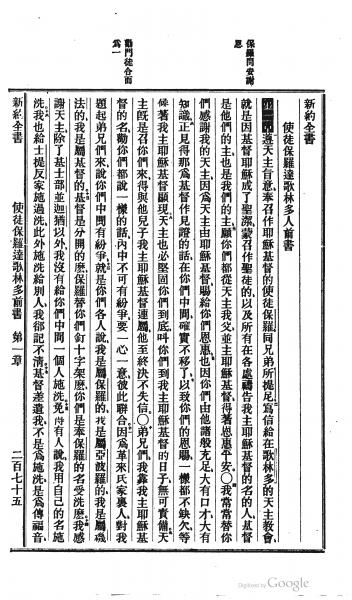 新約全書
使徒保羅達歌林多人前書
保羅問安謝
恩
勸門徒合而
爲一
第一章遵天主旨意奉召作耶穌基督的使徒保羅同兄弟所提尼爲信給在歌林多的天主教會
就是因基督耶穌成了聖潔蒙召作聖徒的以及所有在各處禱告我主耶穌基督的名的人基督
是他們的主也是我們的主願你們都從天主我父並主耶穌基督得著恩惠平安○我常常替你
們感謝我的天主因爲天主由耶穌基督賜給你們恩惠也因你們由他諸般充足大有口才大有
知識正見得那爲基督作見證的話在你們中間確實不移了以致你們的恩賜一樣都不缺欠等
候著我主耶穌基督顯現天主也必堅固你們到底叫你們到我主耶穌基督的日子無可責備天
主旣是召你們來得與他兒子我主耶穌基督連屬他至終決不失信○弟兄們我靠我主耶穌基
督的名勸你們都說一樣的話內中不可有紛爭要一心一意彼此聯合因爲革來氏家裏人對我
題起弟兄們來說你們中間有紛爭就是你們各人說我是屬保羅的我是屬亞波羅的我是屬磯
法的我是屬基督的基督是分開的麼保羅替你們釘十字架麼你們是奉保羅的名受洗麼我感
謝天主除了基士部並迦猶以外我沒有給你們中間一個人施洗免得有人說我用自己的名施
洗我也給士提反家施過洗此外施洗給別人我都記不淸基督差遣我不是爲施洗是爲傳福音
新約全書 使徒保羅達歌林多前書 第一章 二百七十五
Digitized by Google